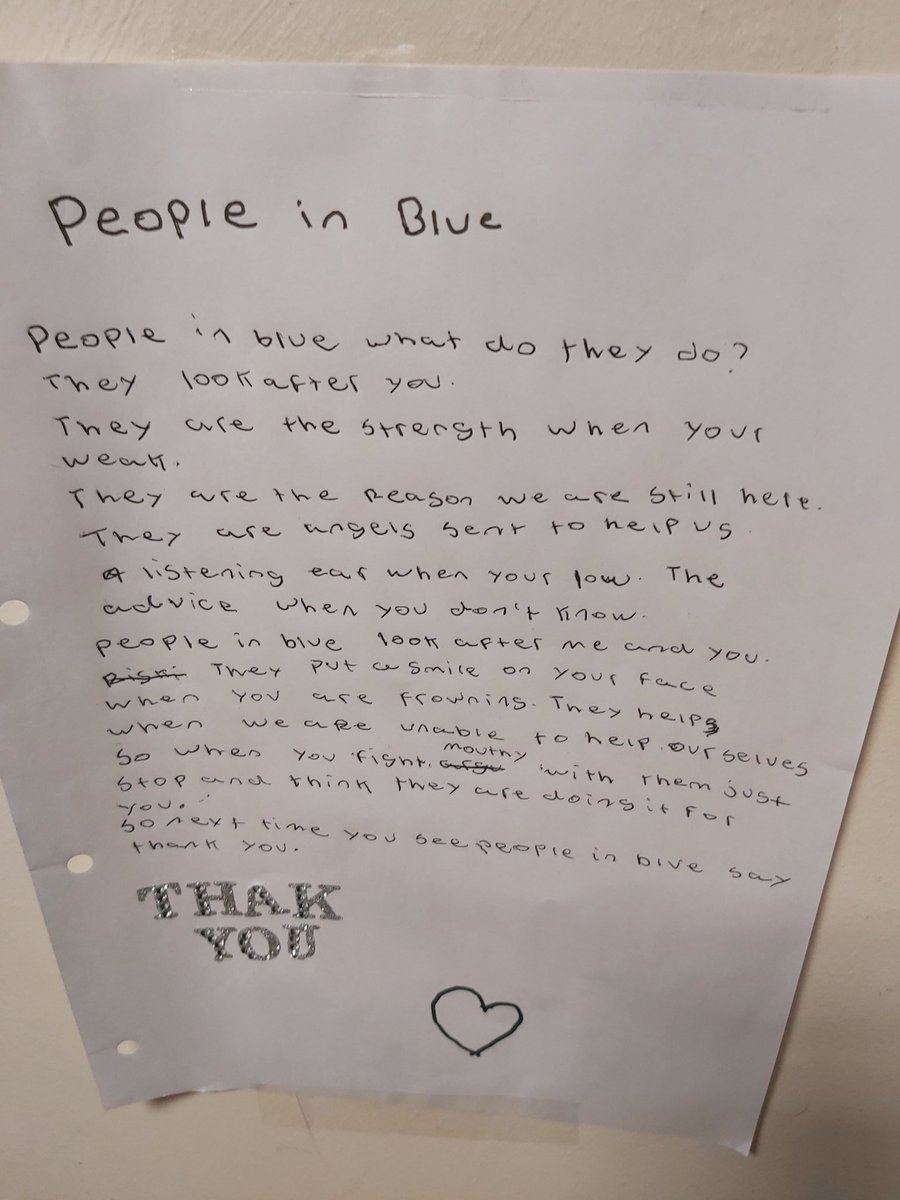 People in Blue
People in blue what do they do?
They look after you.
They are the strength when your
weak.
They are the reason we are still here.
They are angels sent to help us
A listening ear when your low. The
advice when you don't know.
people in blue look after me and you.
They put a smile on your face
when you are frowning. They helps
when we are unable to help ourselves
mouthy
So when you fight. with them just
stop and think they are doing it for
you.
So next time you see people in blue say
thank you.
THAK
YOU